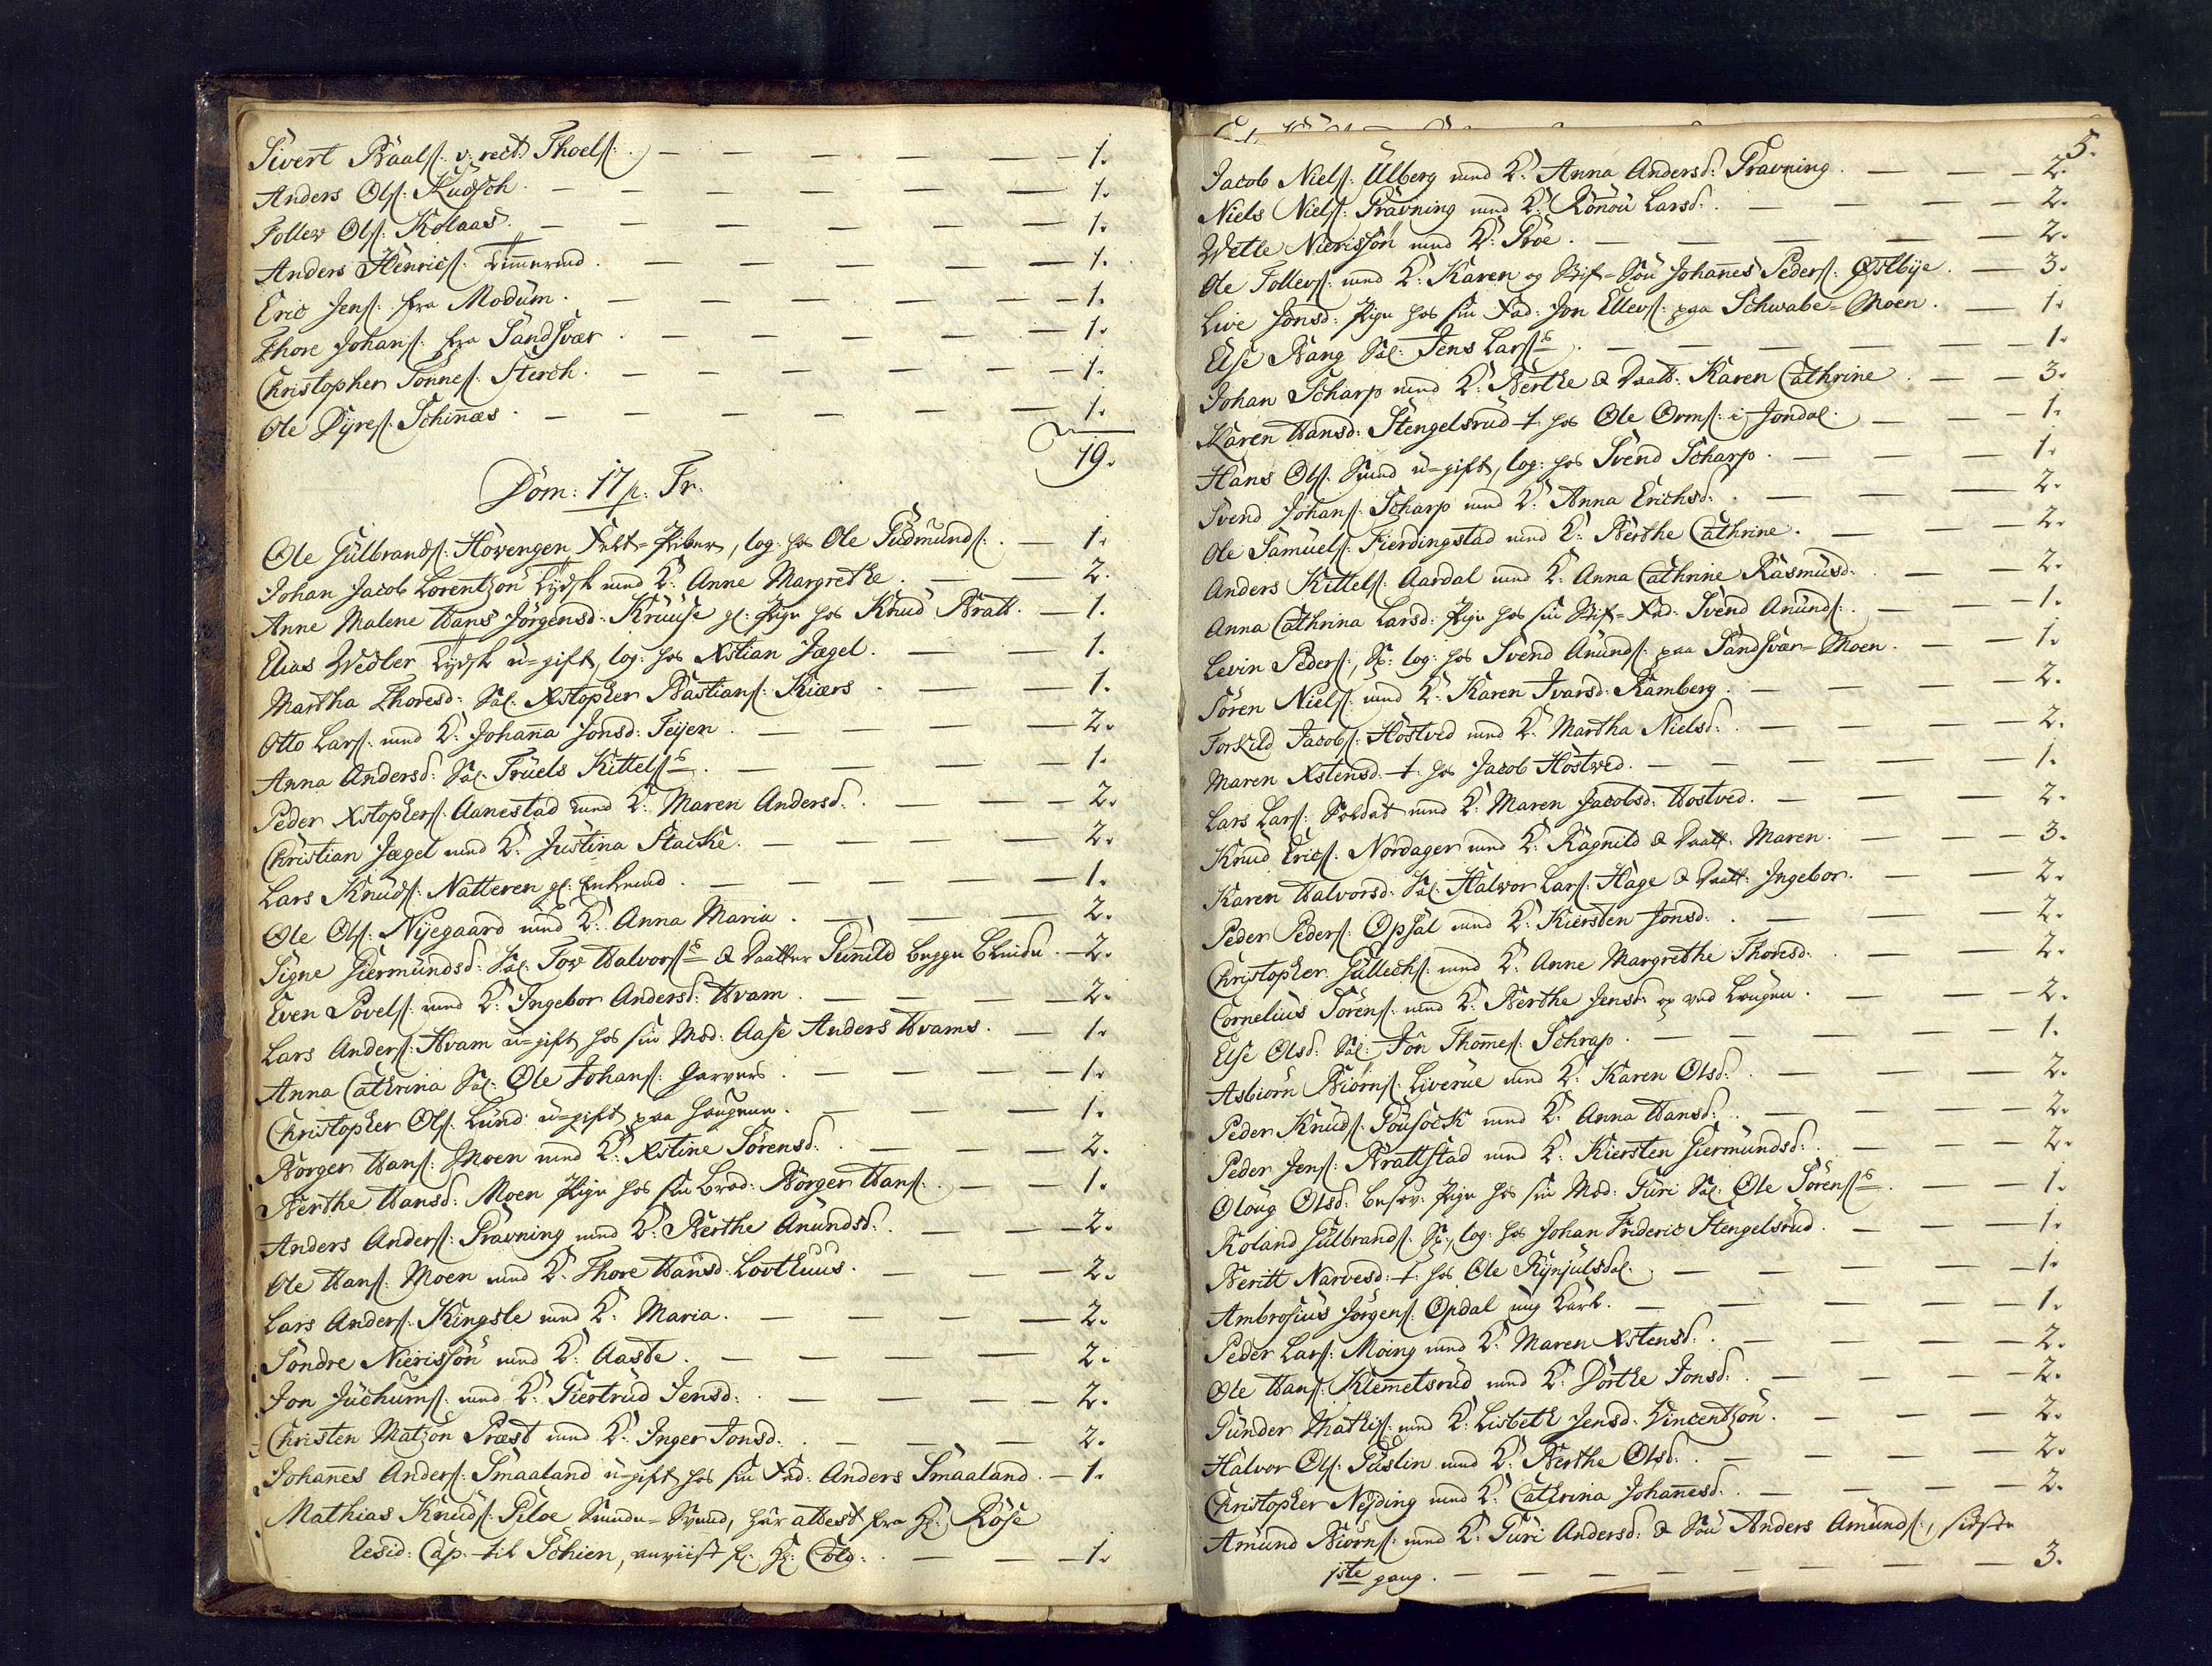 Sivert Baals: v. rect. Thoels: — 1.
Anders Ols: Kudsch. — 1.
Tollev Ols: Kolaas. — 1.
Anders Henrics: Tømmermd. — 1.
Eric Jens: fra Modum. — 1.
Thore Johans: fra Sandsvær — 1.
Christopher Tønnes: Sterch. — 1.
Ole Dyres: Schinæs. — 1.
19.
Dom: 17 p. Tr.
Ole Gulbrands: Høvengen Felt-Piber, log: hos Ole Gudmunds: — 1.
Johan Jacob Lorentzøn Tydsk med K: Anne Margrethe — 2.
Anne Malene Hans Jørgensd: Kruuse gl: Pige hos Knud Bratt. — 1.
Elias Wedler Tydsk u-gift, log: hos Xstian Jægel. — 1.
Martha Thoresd: Sal: Xstopher Bastians: Kiærs — 1.
Otto Lars: med K: Johanna Jonsd: Teyen. — 2.
Anna Andersd: Sal: Truels Kittels: — 1.
Peder Xstophers: Aanestad med K: Maren Andersd: — 2.
Christian Jægel med K: Justina Stacke. — 2.
Lars Knuds: Natteren gl: Enkemd. — 1.
Ole Ols: Nyegaard med K: Anna Maria. — 2.
Signe Giermundsd: Sal: Tov Halvors: & Daatter Gunild begge blinde. — 2.
Even Povels: med K: Ingebor Andersd: Hvam. — 2.
Lars Anders: Hvam u-gift hos sin Mod: Aase Anders Hvams. — 1.
Anna Cathrina Sal: Ole Johans: Garvers. — 1.
Christopher Ols: Lund u-gift paa Haugene. — 1.
Borger Hans: Moen med K: Xstine Sørensd: — 2.
Berthe Hansd: Moen Pige hos sin Brod: Borger Hans: — 1.
Anders Anders: Pravning med K: Berthe Anundsd: — 2.
Ole Hans: Moen med K: Thore Hansd: Lovthuus. — 2.
Lars Anders: Kingsle med K: Maria. — 2.
Søndre Nierissøn med K: Aaste. — 2.
Jon Juchums: med K: Giertrud Jensd: — 2.
Christen Matzøn Præst med K: Inger Jonsd: — 2.
Johannes Anders: Smaaland u-gift hos sin Fad: Anders Smaaland. — 1.
Mathias Knuds: Piloe Smede-Svend, har attest fra Hr: Røse
Resid: Cap: til Schien, anviist fr: Hr: Cold: — 1.
5.
Jacob Niels: Ulberg med K: Anna Andersd: Pravning. — 2.
Niels Niels: Pravning med K: Rønou Larsd: — 2.
Wetle Nierissøn med K: Proe. — 2.
Ole Tollevs: med K: Karen og Stif-Søn Johannes Peders: Østbye. — 3.
Live Jonsd: Pige hos sin Fad: Jon Ellevs: paa Schwabe-Moen. — 1.
Else Bang Sal: Jens Lars: — 1.
Johan Scharp med K: Berthe & Daatt: Karen Cathrine — 3.
Karen Hansd: Stengelsrud t: hos Ole Orms: i Jondal. — 1.
Hans Ols: Smed u-gift, log: hos Svend Scharp. — 1.
Svend Johans: Scharp med K: Anna Erichsd: — 2.
Ole Samuels: Fierdingstad med K: Berthe Cathrine. — 2.
Anders Kittels: Aardal med K: Anna Cathrine Rasmusd: — 2.
Anna Cathrina Larsd: Pige hos sin Stif-Fad: Svend Anunds: — 1.
Levin Peders: Sk: log: hos Svend Anunds: paa Sandsvær-Moen. — 1.
Søren Niels: med K: Karen Ivarsd: Ramberg. — 2.
Torkild Jacobs: Høstved med K: Martha Nielsd: — 2.
Maren Xstensd: t: hos Jacob Høstved. — 1.
Lars Lars: Soldat med K: Maren Jacobsd: Hostved. — 2.
Knud Erics: Nordager med K: Ragnild & Daatt: Maren. — 3.
Karen Halvorsd: Sal: Halvor Lars: Hage & Daatt: Ingebor. — 2.
Peder Peders: Opsal med K: Kiersten Jonsd: — 2.
Christopher Gullechs: med K: Anne Margrethe Thoresd: — 2.
Cornelius Sørens: med K: Berthe Jensd: op ved Laugen. — 2.
Else Olsd: Sal: Jon Thommes: Schrap. — 1.
Asbiørn Biørns: Liverue med K: Karen Olsd: — 2.
Peder Knuds: Pousock med K: Anna Hansd: — 2.
Peder Jens: Brattstad med K: Kiersten Giermundsd: — 2.
Oloug Olsd: besov: Pige hos sin Mod: Guri Sal: Ole Sørens: — 1.
Roland Gulbrands: Sk:, log: hos Johan Frideric Stengelsrud. — 1.
Beritt Narvesd: t: hos Ole Rynjulsdal. — 1.
Ambrosius Jørgens: Opdal ung Karl. — 1.
Peder Lars: Moing med K: Maren Xstensd: — 2.
Ole Hans: Klemmetsrud med K: Dorthe Jonsd: — 2.
Gunder Mathis: med K: Lisbeth Jensd: Vincentzøn. — 2.
Halvor Ols: Puslin med K: Berthe Olsd: — 2.
Christopher Neyding med K: Cathrina Johannesd: — 2.
Amund Biørns: med K: Guri Andersd: & Søn Anders Amunds:, sidste
1ste gang. — 3.